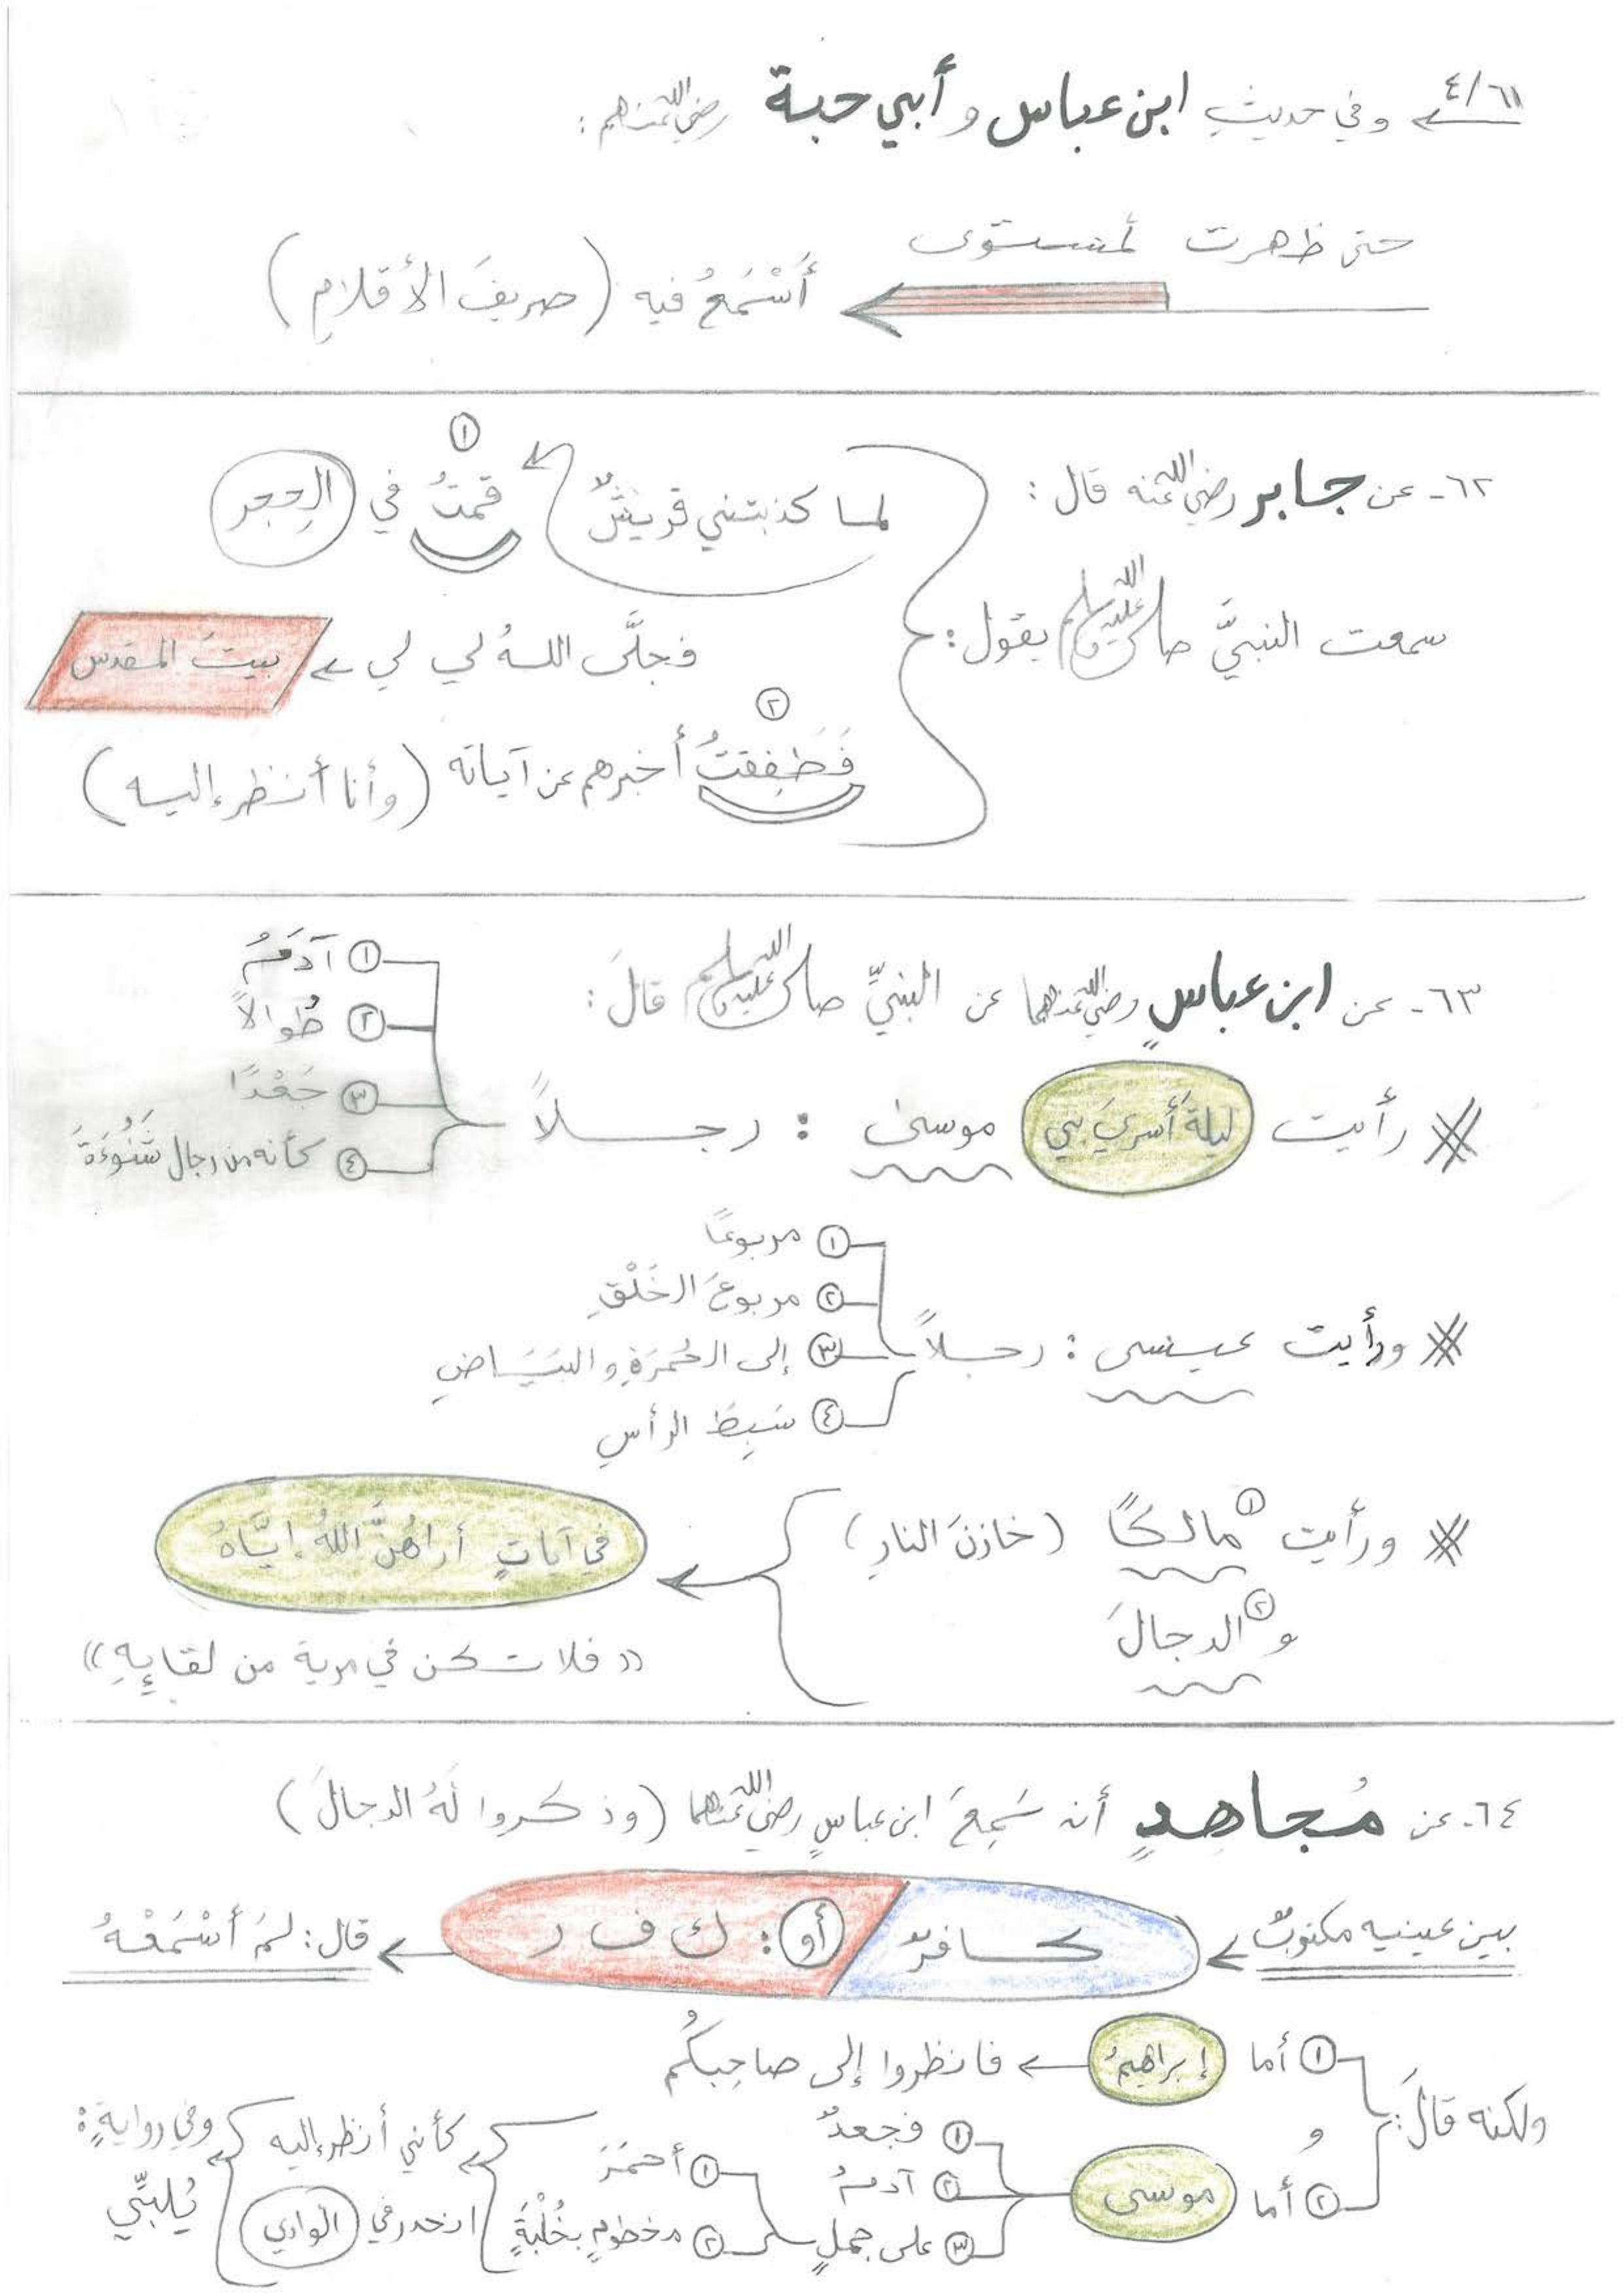 ٤/٦١ وفي حديث ابن عباس وأبي حبة رضي الله عنهم:
حتى ظهرت لمستوى
أَسْمَعُ فيه (صريفَ الأقلامِ)
٦٢- عن جابر رضي الله عنه قال:
سمعت النبيَّ صلى الله عليه وسلم يقول:
لما كذبتني قريشٌ ١ قمتُ في الحِجر
فجلَّى اللهُ لي لي بيتَ المقدس
٢ فَطَفِقتُ أخبرهم عن آياته (وأنا أنظر إليه)
٦٣- عن ابن عباسٍ رضي الله عنهما عن النبيِّ صلى الله عليه وسلم قالَ:
رأيت ليلةَ أُسريَ بي موسى: رجلاً
١ آدَمَُ
٢ طُوالاً
٣ جَعْدًا
٤ كأنه من رجال شَنُوءَةَ
ورأيت عيسى: رجلاً
١ مربوعًا
٢ مربوعَ الخَلْقِ
٣ إلى الحُمرَةِ والبَيَاضِ
٤ سَبِطَ الرأسِ
ورأيت ١ مالكًا (خازنَ النارِ)
و ٢ الدجالَ
في آياتٍ أراهُنَّ اللهُ إيَّاهُ
((فلا تكن في مرية من لقائِهِ))
٦٤- عن مُجاهدٍ أنه سَمِعَ ابن عباسٍ رضي الله عنهما (وذكروا لَهُ الدجالَ)
بين عينيه مكتوبٌ كافرٌ أو: ك ف ر قال: لمَ أَسْمَعْهُ
ولكنه قالَ:
١ أما إبراهيمُ فانظروا إلى صاحِبِكُم
و
٢ أما موسى
١ فجعدٌ
٢ آدمُ
٣ على جملٍ
١ أحمَرَ
٢ مخطومٍ بخُلْبَةٍ
كأني أنظر إليه
انحدر في الوادي
وفي روايةٍ:
يُلبِّي